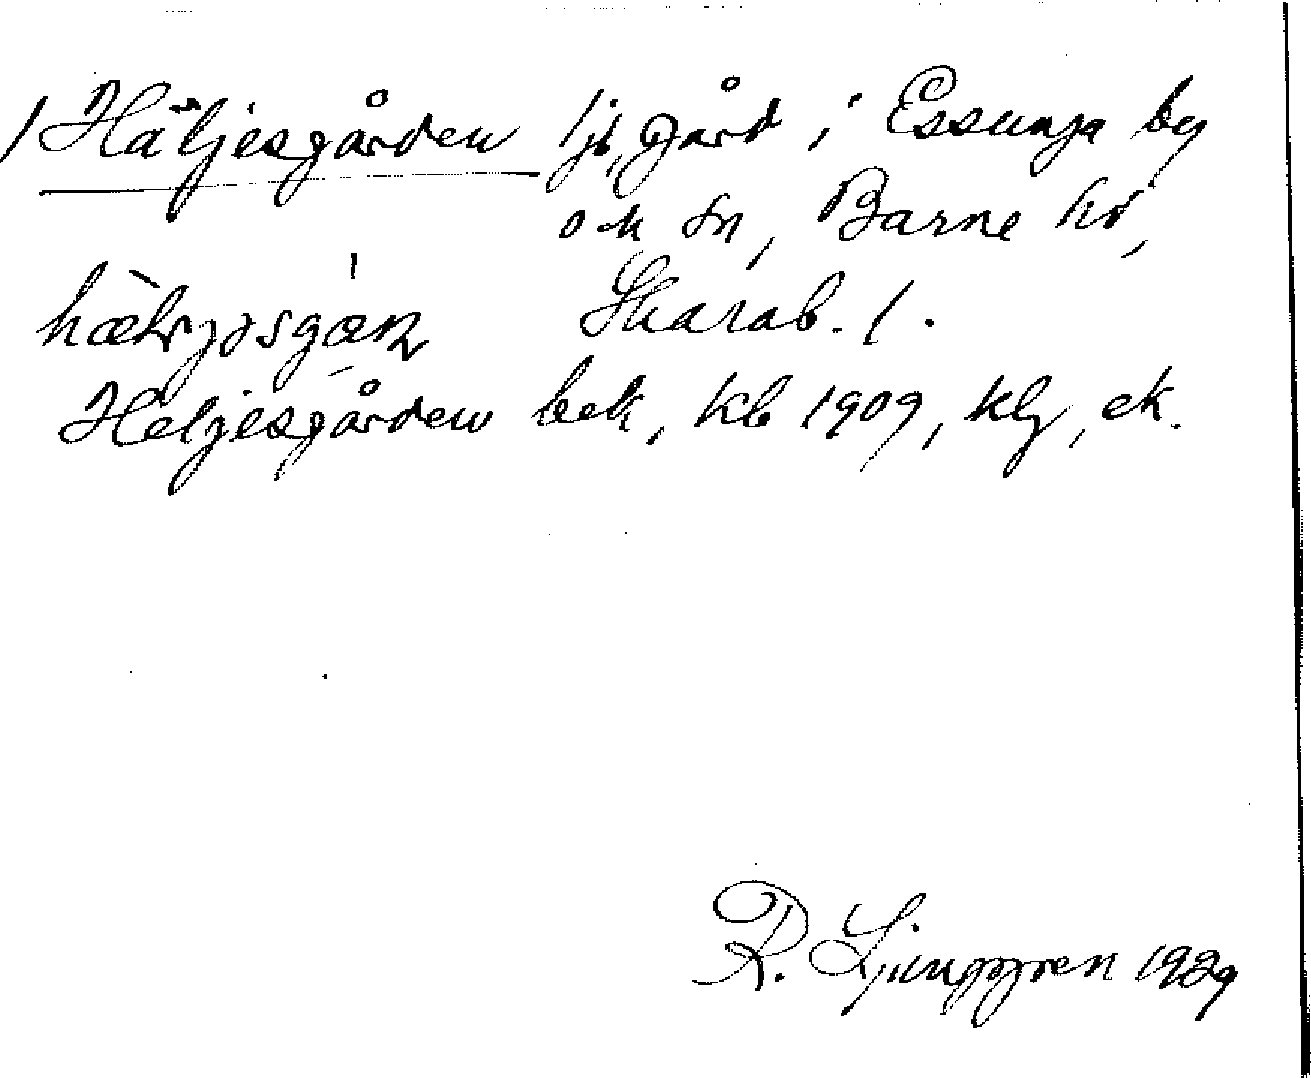 /Häljesgården ljt, gård i Essunga by
och sn, Barne hd,
Skarab. l.
Heljesgården bek, kb 1909, klg, ek.
R. Ljunggren 1929